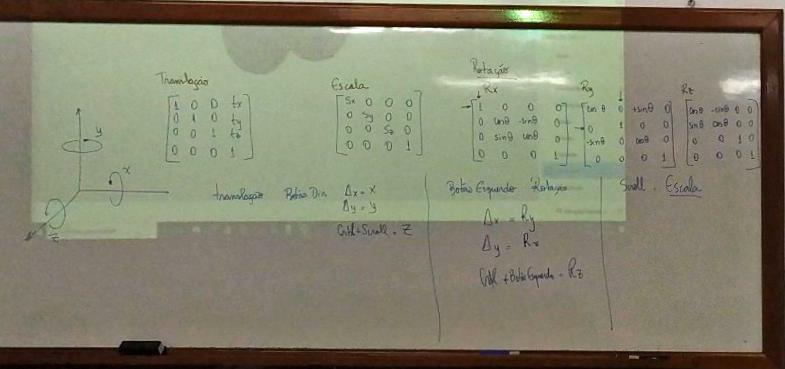 Translação
1 0 0 tx
0 1 0 ty
0 0 1 tz
0 0 0 1
Escala
Sx 0 0 0
0 Sy 0 0
0 0 Sz 0
0 0 0 1
Rotação
Rx
1 0 0 0
0 cosθ -sinθ 0
0 sinθ cosθ 0
0 0 0 1
Ry
cos θ 0 +sinθ 0
0 1 0 0
-sinθ 0 cosθ 0
0 0 0 1
Rz
cosθ -sinθ 0 0
sinθ cosθ 0 0
0 0 1 0
0 0 0 1
y
x
z
translação Botão Dir. Δx = x
Δy = y
Ctrl+Scroll = Z
Botão Esquerdo Rotação
Δx = Ry
Δy = Rx
Ctrl + Botão Esquerdo = Rz
Scroll . Escala